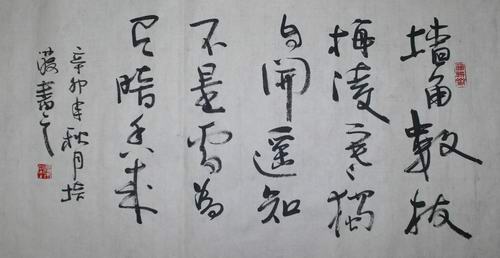 墻角數枝
梅凌寒獨
自開遥知
不是雪為
有暗香來
辛卯年秋月
書